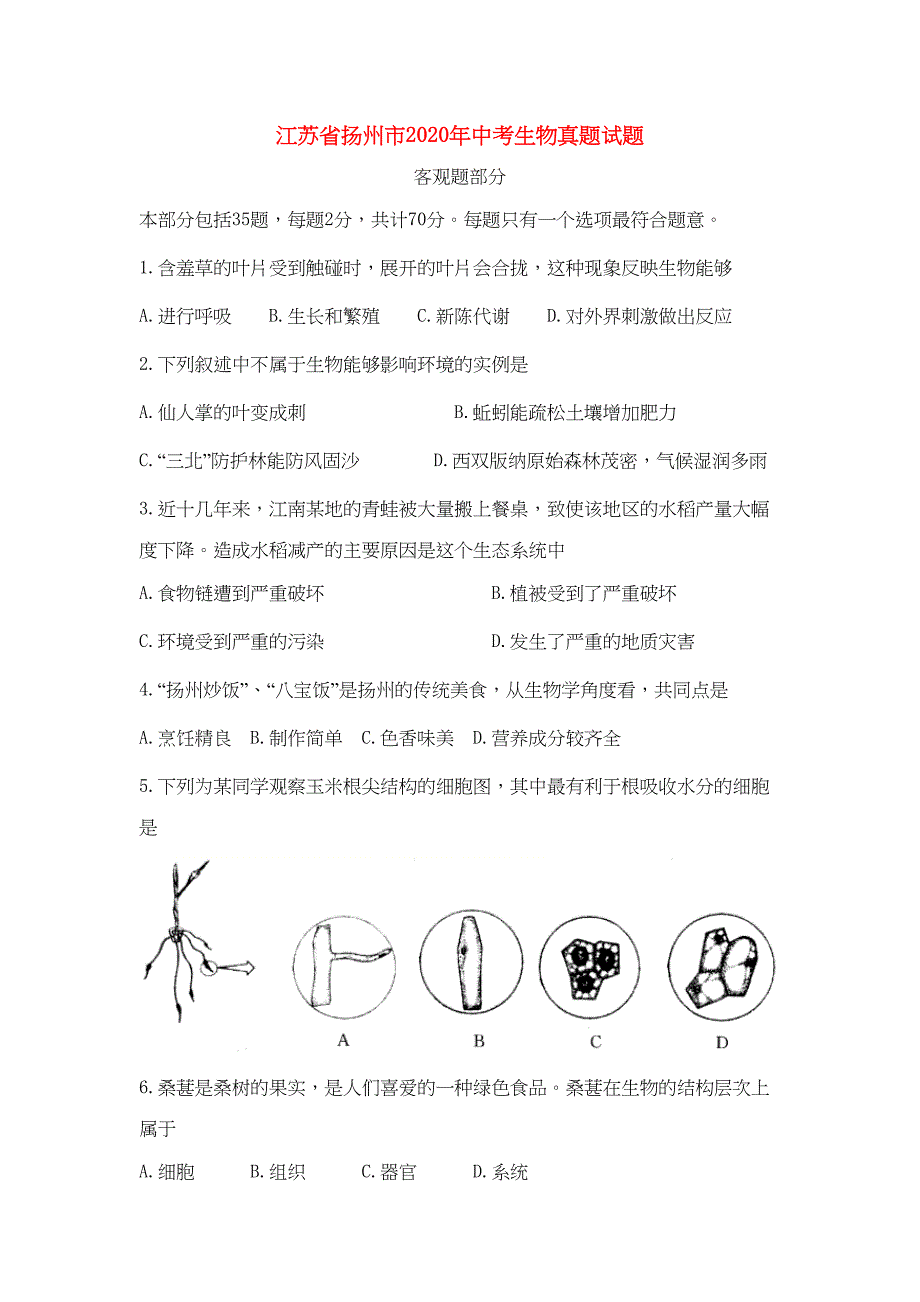 江苏省扬州市2020年中考生物真题试题
客观题部分
本部分包括35题，每题2分，共计70分。每题只有一个选项最符合题意。
1.含羞草的叶片受到触碰时，展开的叶片会合拢，这种现象反映生物能够
A.进行呼吸 B.生长和繁殖 C.新陈代谢 D.对外界刺激做出反应
2.下列叙述中不属于生物能够影响环境的实例是
A.仙人掌的叶变成刺 B.蚯蚓能疏松土壤增加肥力
C.“三北”防护林能防风固沙 D.西双版纳原始森林茂密，气候湿润多雨
3.近十几年来，江南某地的青蛙被大量搬上餐桌，致使该地区的水稻产量大幅
度下降。造成水稻减产的主要原因是这个生态系统中
A.食物链遭到严重破坏 B.植被受到了严重破坏
C.环境受到严重的污染 D.发生了严重的地质灾害
4.“扬州炒饭”、“八宝饭”是扬州的传统美食，从生物学角度看，共同点是
A.烹饪精良 B.制作简单 C.色香味美 D.营养成分较齐全
5.下列为某同学观察玉米根尖结构的细胞图，其中最有利于根吸收水分的细胞
是
A B C D
6.桑葚是桑树的果实，是人们喜爱的一种绿色食品。桑葚在生物的结构层次上
属于
A.细胞 B.组织 C.器官 D.系统